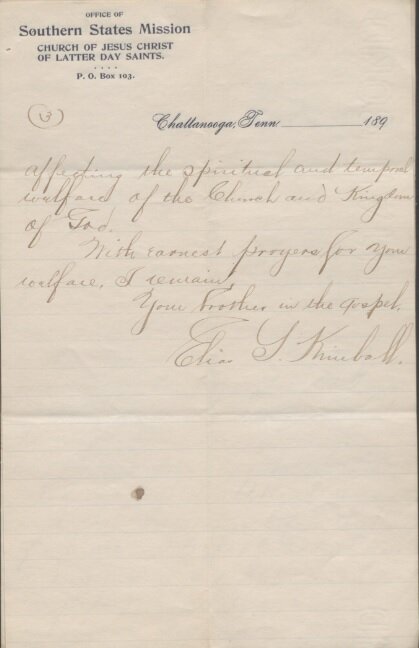 OFFICE OF
Southern States Mission
CHURCH OF JESUS CHRIST
OF LATTER DAY SAINTS.
....
P. O. Box 103.
(3)
Chattanooga, Tenn. 189
affecting the spiritual and temporal
welfare of the Church and Kingdom
of God.
With earnest prayers for your
welfare, I remain
Your brother in the gospel,
Elias S. Kimball.